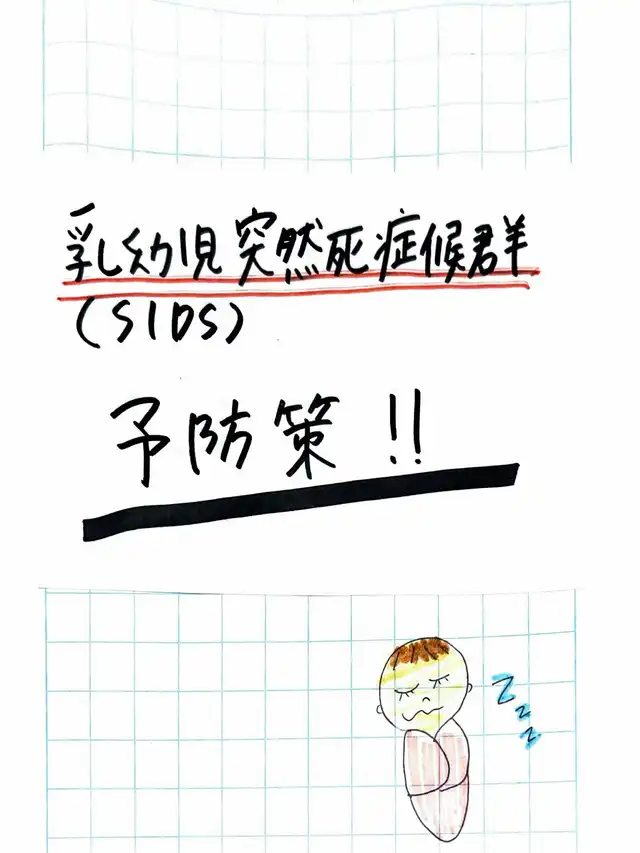 乳幼児突然死症候群
(SIDS)
予防策!!
z
z
z